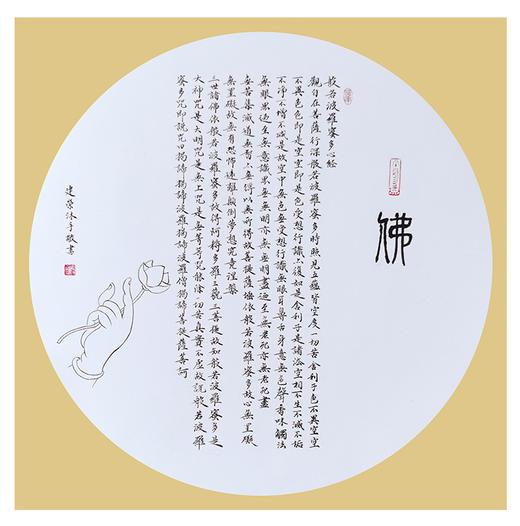 佛
般若波羅蜜多心經
觀自在菩薩行深般若波羅蜜多時照見五蘊皆空度一切苦舍利子色不異空空
不異色色即是空空即是色受想行識亦復如是舍利子是諸法空相不生不滅不垢
不淨不增不減是故空中無色無受想行識無眼耳鼻舌身意無色聲香味觸法
無眼界乃至無意識界無無明亦無無明盡乃至無老死亦無老死盡
無苦集滅道無智亦無得以無所得故菩提薩埵依般若波羅蜜多故心無罣礙
無罣礙故無有恐怖遠離顛倒夢想究竟涅槃
三世諸佛依般若波羅蜜多故得阿耨多羅三藐三菩提故知般若波羅蜜多是
大神咒是大明咒是無上咒是無等等咒能除一切苦真實不虛故說般若波羅
蜜多咒即說咒曰揭諦揭諦波羅揭諦波羅僧揭諦菩提薩婆訶
建榮沐手敬書